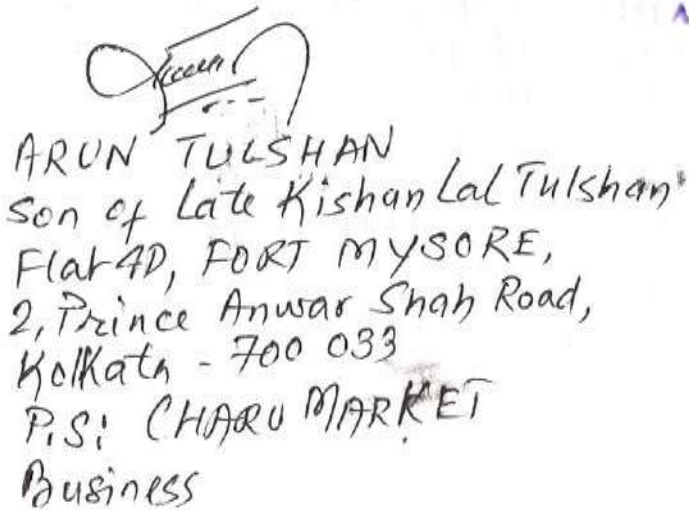 ARUN TULSHAN
Son of Late Kishan Lal Tulshan
Flat 4D, FORT MYSORE,
2, Prince Anwar Shah Road,
Kolkata - 700 033
P.S: CHARU MARKET
Business